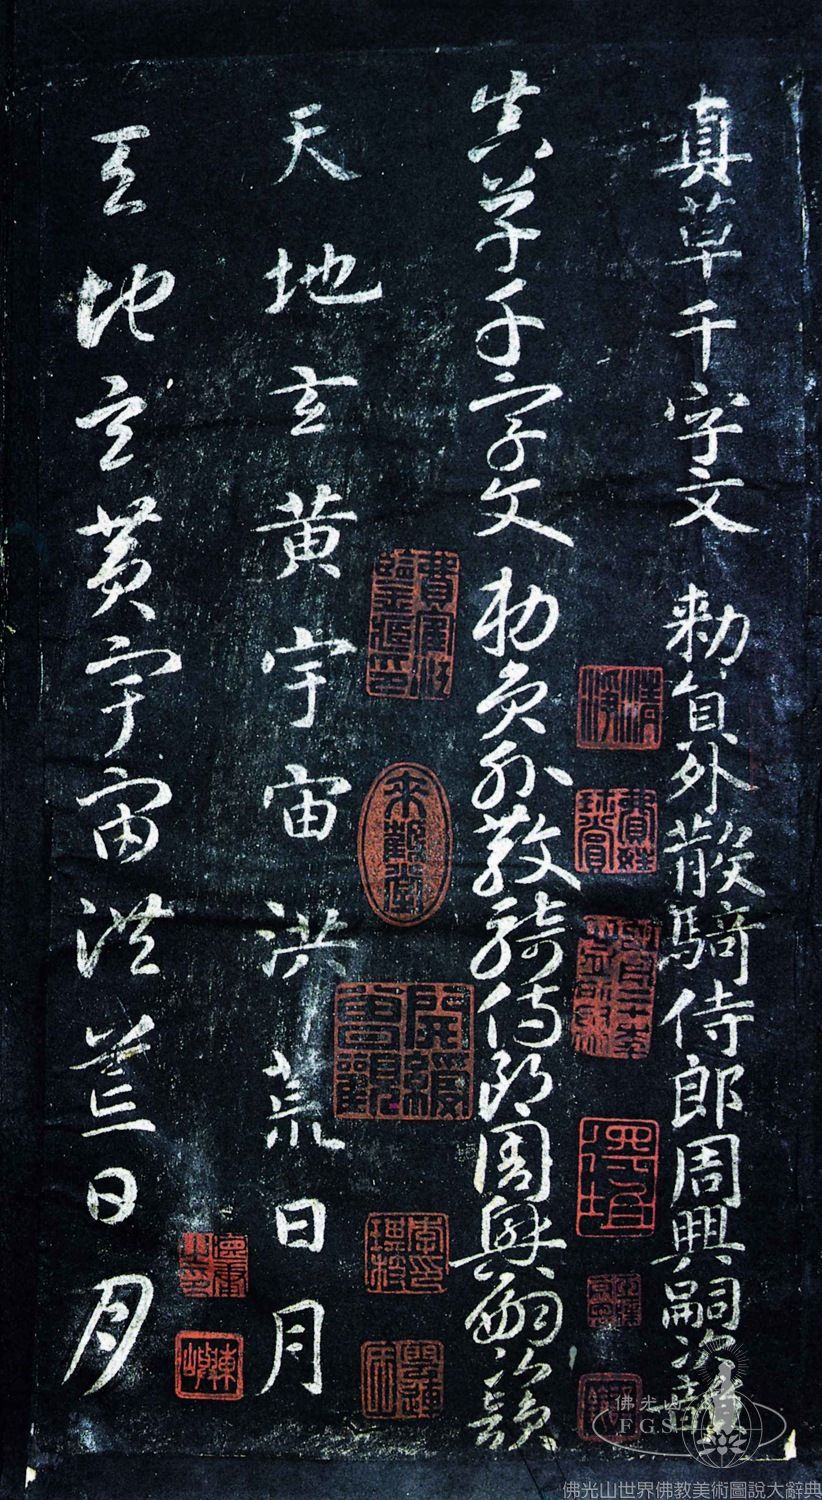 真草千字文 勑員外散騎侍郎周興嗣次韻
真草千字文 勑員外散騎侍郎周興嗣次韻
天地玄黃宇宙洪荒日月
天地玄黃宇宙洪荒日月
佛光山
FGS
佛光山世界佛教美術圖說大辭典